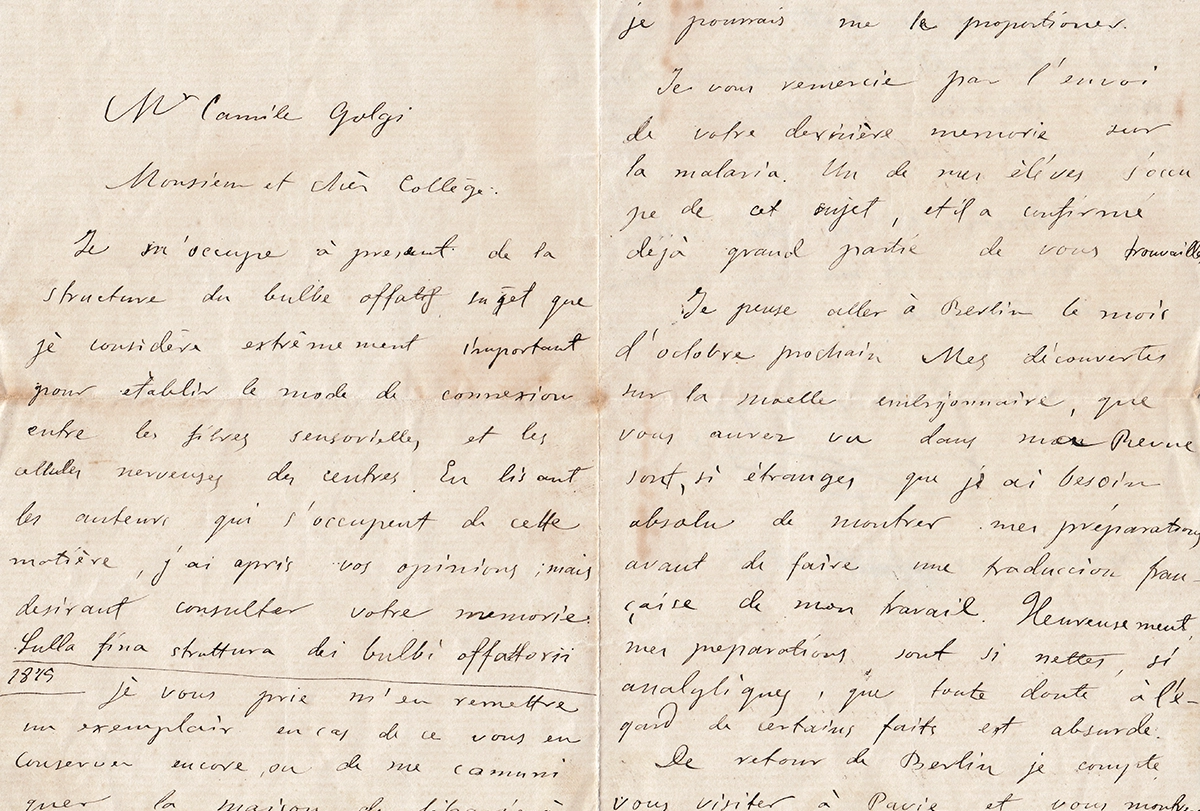 Mr Camile Golgi
Monsieur et chèr Collège.
Je m'occupe à present de la
structure du bulbe offatif sujet que
jè considère extrêmement important
pour établir le mode de connexion
entre les fibres sensorielles, et les
cellules nerveuses des centres. En lisant
les auteurs qui s'occupent de cette
matière, j'ai apris vos opinions; mais
desirant consulter votre memorie
Sulla fina struttura dei bulbi offattorii
1875
jè vous prie m'en remettre
un exemplair en cas de ce vous en
conserver encore, ou de me camuni
quer la maison de librairie à
je pourrais me le proportioner.
Je vous remercie par l'envoi
de votre dernière memorie sur
la malaria. Un de mes élèves s'occu
pe de cet sujet, et il a confirmé
déjà grand partie de vous trouvailles
Je pense aller à Berlin le mois
d'octobre prochain Mes découvertes
sur la moelle embryonnaire, que
vous aurez vu dans mon Revue
sont, si étranges que jè ai besoin
absolu de montrer mes préparations
avant de faire une traduccion fran
çaise de mon travail. Heureusement,
mes preparations sont si nettes, si
analytiques, que toute doute à l'é-
gard de certains faits est absurde.
De retour de Berlin je compte
vous visiter à Pavie et vous